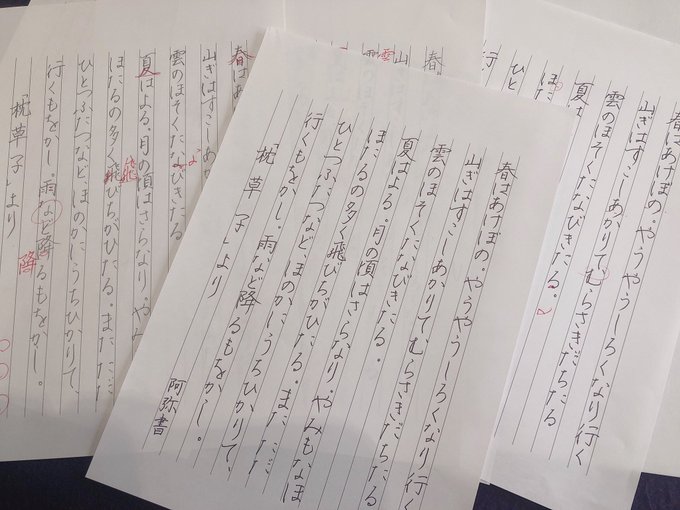 春はあけぼの。やうやうしろくなり行く
山ぎはすこしあかりてむらさきだちたる
雲のほそくたなびきたる。
夏はよる。月の頃はさらなり。やみもなほ
ほたるの多く飛びちがひたる。まただ
ひとつふたつなど、ほのかにうちひかりて、
行くもをかし。雨など降るもをかし。
「枕草子」より
阿弥書
春はあけぼの。やうやうしろくなり行く
山ぎはすこしあかりてむらさきだちたる
雲のほそくたなびきたる。
夏は
ほた
ひと
行
春は
山ぎは
雲
春はあ
山ぎはすこしあ
雲のほそくたなびきたる
夏はよる。月の頃はさらなり。やみ
ほたるの多く飛びちがひたる。まただ
飛
ひとつふたつなど、ほのかにうちひかりて、
行くもをかし。雨など降るもをかし。
降
「枕草子」より